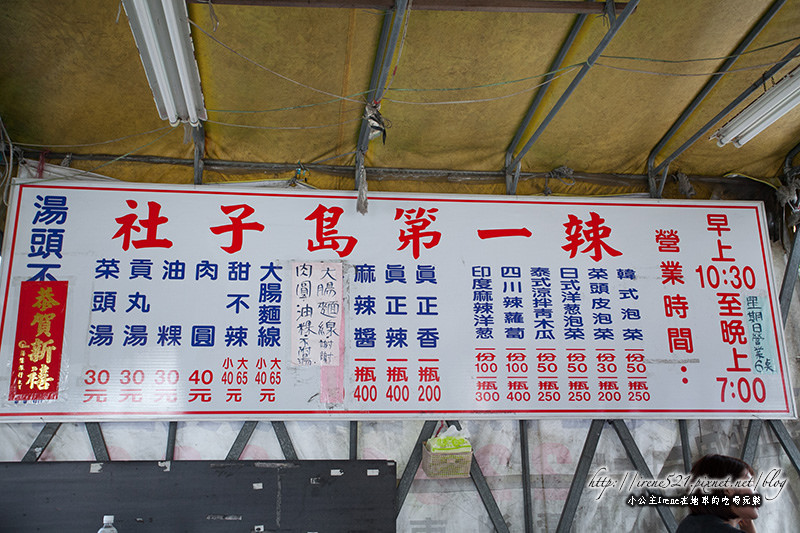 社子島第一辣
湯頭不
恭賀新禧
菜頭湯 30元
貢丸湯 30元
油粿 30元
肉圓 40元
甜不辣 小40 大65元
大腸麵線 小40 大65元
大腸麵線
肉圓油粿
麻辣醬 一瓶400
真正辣 一瓶400
真正香 一瓶200
印度麻辣洋葱 一份100 一瓶300
四川辣蘿蔔 一份100 一瓶400
泰式涼拌青木瓜 一份50 一瓶250
日式洋葱泡菜 一份50 一瓶250
菜頭皮泡菜 一份30 一瓶200
韓式泡菜 一份50 一瓶250
營業時間:
早上
10:30
至晚上
7:00
星期日營業
http://irene521.pixnet.net/blog
小公主Irene在地球的吃喝玩樂